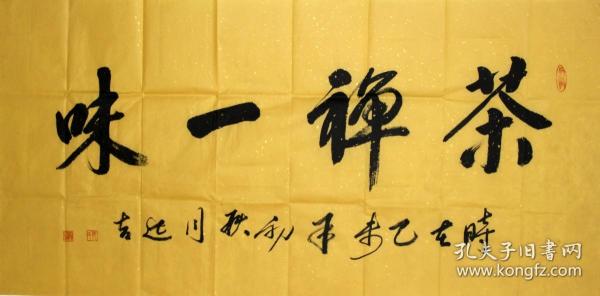 茶禅一味
時在乙未年初秋月
孔夫子旧书网
www.kongfz.com